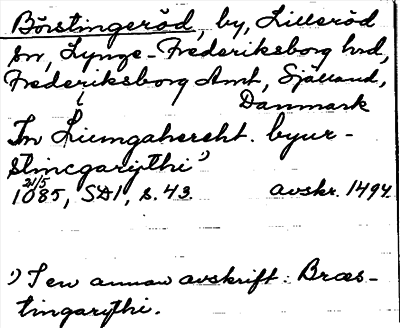 Börstingeröd, by, Lilleröd
sn, Lynge-Frederiksborg hrd,
Frederiksborg Amt, Själland,
Danmark
In Liumgahereht. byur-
stincgarythi¹)
21/5
1085, SD1, s. 43. avskr. 1494.
¹) I en annan avskrift: Bræs-
tingarythi.